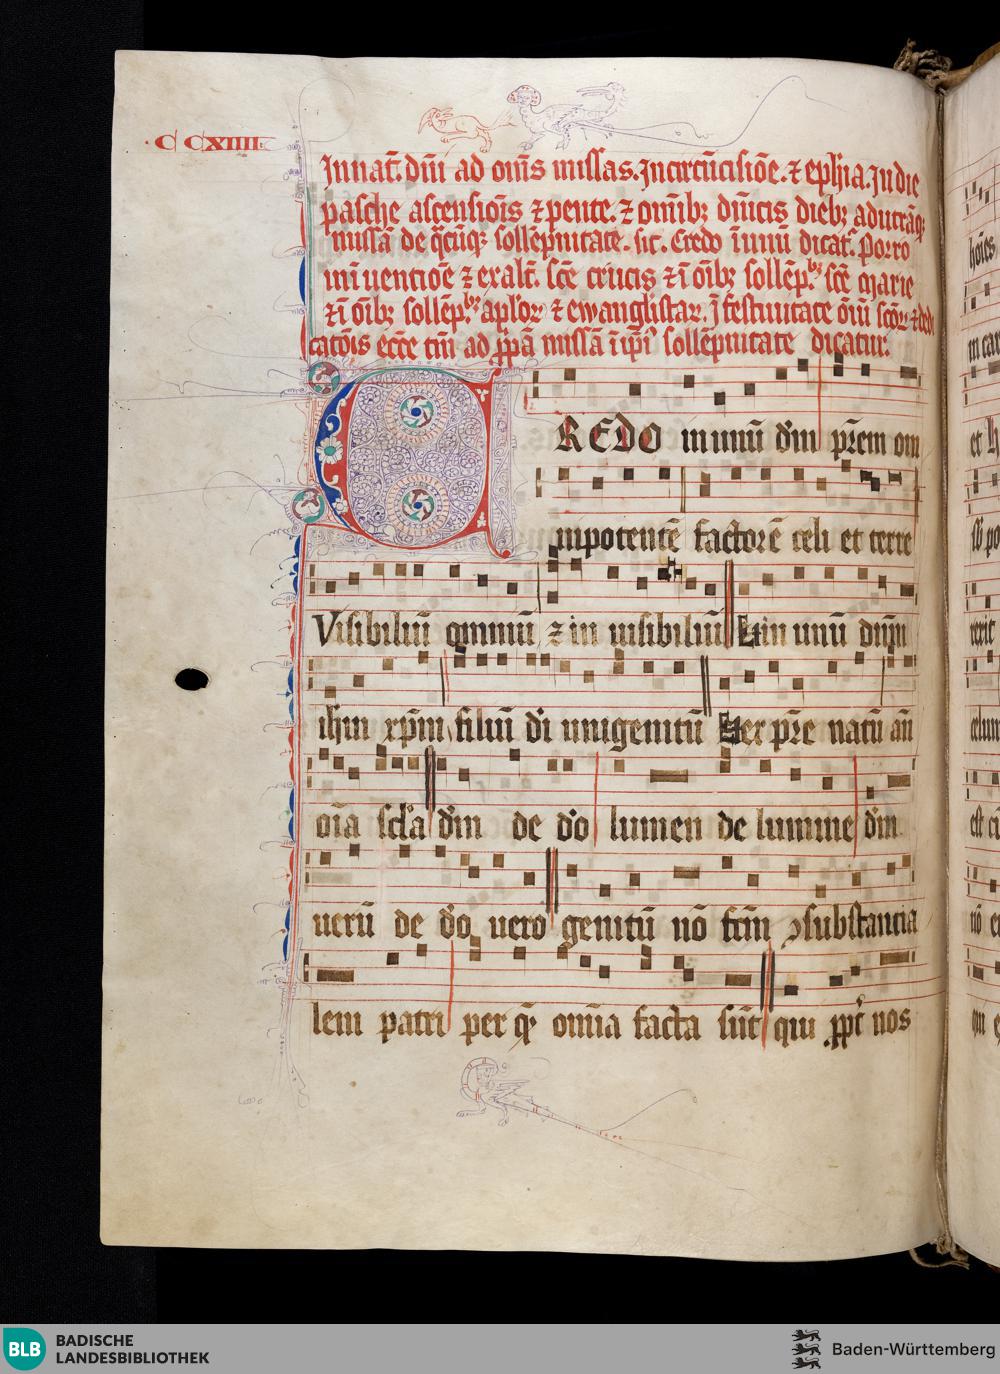 · C CXIIII ·
In nat̄. dn̄i ad om̄s missas. In circūcisiōe. ⁊ ephīa. In die
pasche ascensiōis ⁊ pente. ⁊ om̄ibꝫ dn̄icis diebꝫ ad utrāqꝫ
missā de q̄cūqꝫ sollēpnitate. sic. Credo ī unū dicat̄. Porro
in īuentiōe ⁊ exalt̄. sc̄e crucis ⁊ ī ōibꝫ sollēp.bꝫ sc̄e marie
⁊ ī ōibꝫ sollēp.bꝫ apl̄oꝝ ⁊ ewanglistaꝝ. ī festiuitate ōiū sc̄oꝝ ⁊ dedi
catōis ecc̄e tm̄ ad pp̄a missā ī ip̄i sollēpnitate dicatur.
CREDO in unū dm̄ pr̄em om
nipotentē factorē celi et terre
Visibiliū omniū ⁊ in uisibiliū Et in unū dn̄m
ihm xp̄m filiū di unigenitū Et ex pr̄e natū an̄
oīa scl̄a dm̄ de do lumen de lumine dm̄
uerū de do uero genitū nō fcm̄ ꝯsubstantia
lem patri per q̄ omīa facta sūt qui ꝓpt̄ nos
BLB BADISCHE
LANDESBIBLIOTHEK
Baden-Württemberg